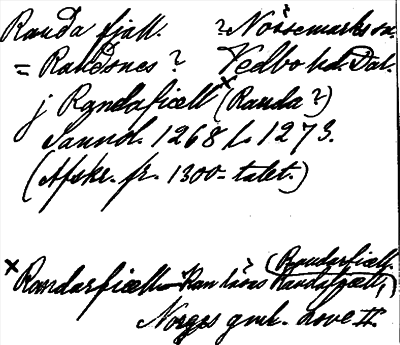 Randa fjäll. ? Nössemarks sn.
= Randsnes ? Vedbo hd. Dal.
j Randafiæll x (Randa ?)
Sannol. 1268 f. 1273.
(Afskr. fr. 1300-talet.)
(Randarfiæll.
x Randarfiæll kan läsas Randafgæll,)
Norges gml. Love II.